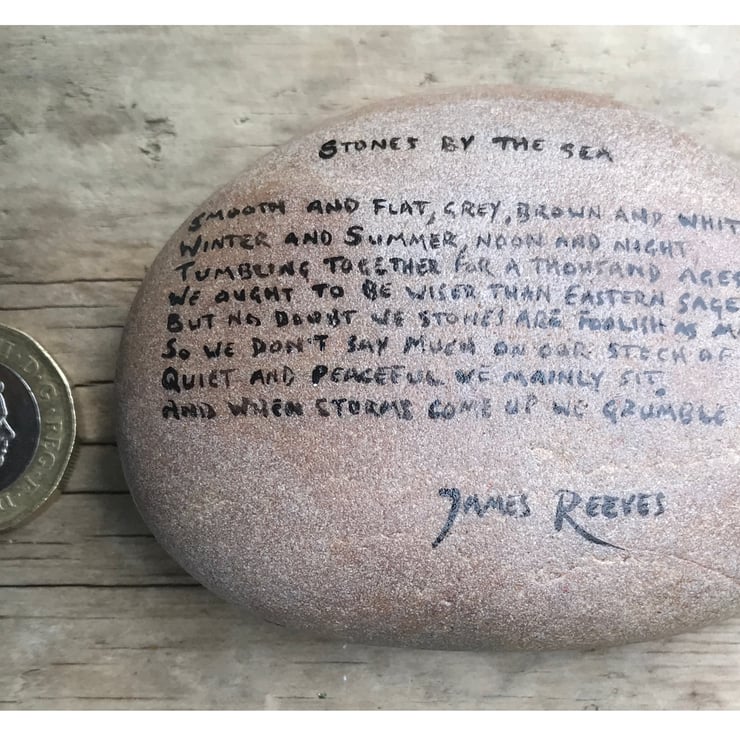 STONES BY THE SEA
SMOOTH AND FLAT, GREY, BROWN AND WHIT
WINTER AND SUMMER, NOON AND NIGHT,
TUMBLING TOGETHER FOR A THOUSAND AGES
WE OUGHT TO BE WISER THAN EASTERN SAGE
BUT NO DOUBT WE STONES ARE FOOLISH AS M
SO WE DON'T SAY MUCH ON OUR STOCK OF
QUIET AND PEACEFUL WE MAINLY SIT,
AND WHEN STORMS COME UP WE GRUMBLE
JAMES REEVES